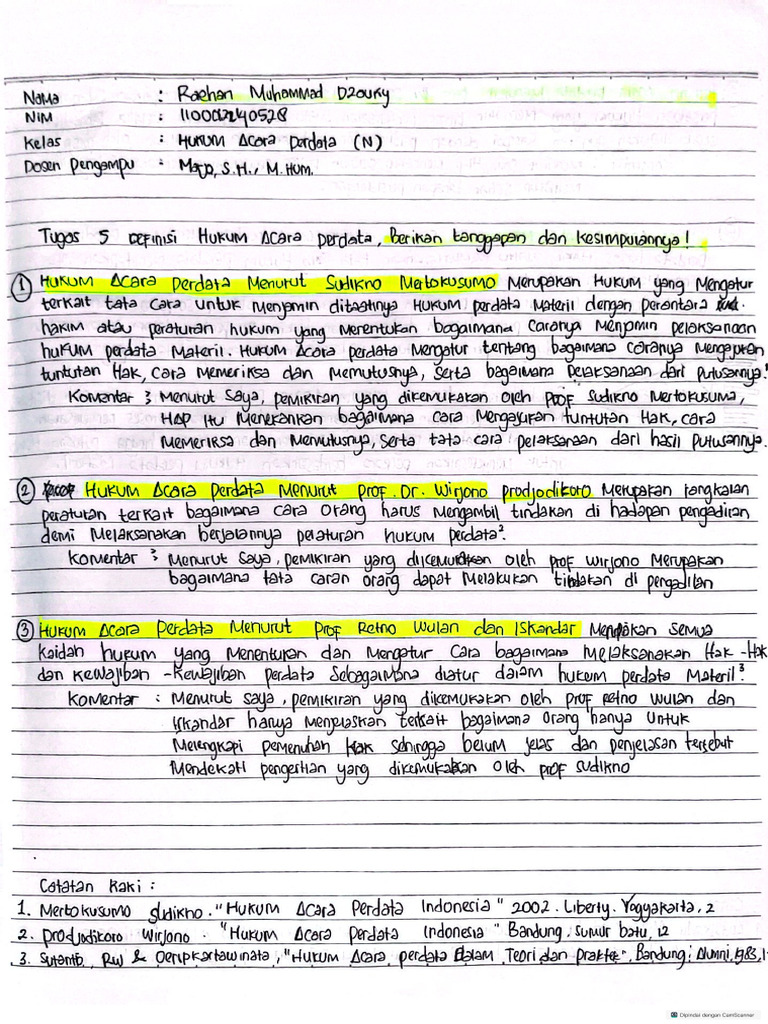 Nama : Raehan Muhammad Dzouky
NIM : 11000122140528
Kelas : Hukum Acara Perdata (N)
Dosen Pengampu : S.H., M.Hum.
Tugas 5 Definisi Hukum Acara Perdata, Berikan tanggapan dan Kesimpulannya!
① Hukum Acara Perdata Menurut Sudikno Mertokusumo Merupakan Hukum yang Mengatur
terkait tata cara untuk Menjamin ditaatinya Hukum perdata Materil dengan perantara
hakim atau peraturan hukum yang Menentukan bagaimana caranya Menjamin pelaksanaan
hukum perdata Materil. Hukum Acara perdata Mengatur tentang bagaimana caranya Mengajukan
tuntutan Hak, Cara Memeriksa dan Memutusnya, Serta bagaimana pelaksanaan dari Putusannya.¹
Komentar : Menurut Saya, pemikiran yang dikemukakan oleh Prof Sudikno Mertokusuma,
HAP itu Menekankan bagaimana cara Mengajukan tuntutan Hak, cara
Memeriksa dan Memutusnya, Serta tata cara pelaksanaan dari hasil Putusannya.
② Hukum Acara Perdata Menurut Prof. Dr. Wirjono Prodjodikoro Merupakan rangkaian
peraturan terkait bagaimana cara Orang harus Mengambil tindakan di hadapan pengadilan
demi Melaksanakan berjalannya peraturan hukum perdata²
Komentar : Menurut Saya, pemikiran yang dikemukakan oleh prof wirjono Merupakan
bagaimana tata caran orang dapat Melakukan tindakan di pengadilan
③ Hukum Acara Perdata Menurut Prof Retno Wulan dan Iskandar Merupakan Semua
kaidah hukum yang Menentukan dan Mengatur Cara bagaimana Melaksanakan Hak-Hak
dan Kewajiban-Kewajiban perdata Sebagaimana diatur dalam hukum perdata Materil³
Komentar : Menurut Saya, pemikiran yang dikemukakan oleh prof retno wulan dan
Iskandar hanya Menjelaskan terkait bagaimana Orang hanya Untuk
Melengkapi pemenuhan Hak Sehingga belum jelas dan penjelasan tersebut
Mendekati pengertian yang dikemukakan oleh prof Sudikno
Catatan Kaki :
1. Mertokusumo Sudikno. "Hukum Acara Perdata Indonesia" 2002. Liberty. Yogyakarta, 2
2. Prodjodikoro Wirjono. "Hukum Acara Perdata Indonesia" Bandung, Sumur batu, 12
3. Sutantio, RW & Oeripkartawinata, "Hukum Acara perdata Dalam Teori dan Praktek", Bandung: Alumni, 1983, 1
Dipindai dengan CamScanner